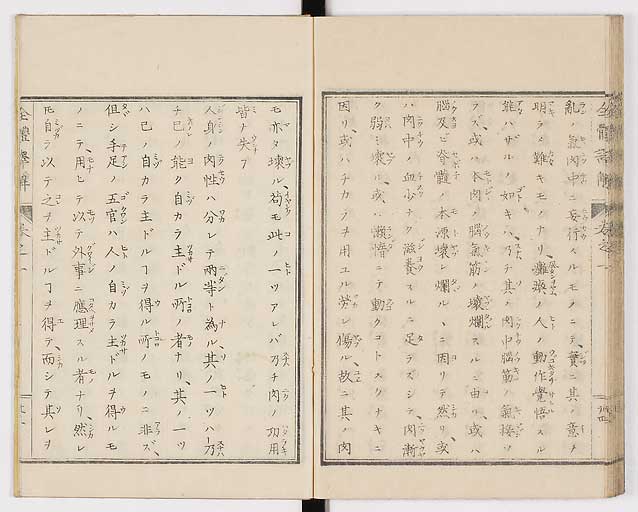 亂ノ氣肉中ニ妄行スルモノニテ、實ニ其ノ意ヲ
明ラメ難キモノナリ、癱瘓ノ人ノ動作覺悟スル
能ハザルノ如キハ、乃チ其ノ肉中腦筋ノ氣接ハ
ラズ、或ハ本肉ノ腦氣筋ノ壞爛スルニ由リ、或ハ
腦及ビ脊髓ノ本源壞レ爛ル、ニ因リテ然リ、或
ハ肉中ノ血少ナク滋養スルニ足ラズシテ、肉漸
ク弱ミ壞ル、或ハ懶惰ニテ動クコトスクナキニ
因リ、或ハチカラヲ用ユル勞レ傷ル、故ニ其ノ肉
モ亦タ壞ル、苟モ此ノ一ツアレバ乃チ肉ノ功用
皆ナ失フ
人身ノ肉性ハ分レテ兩半ト為ル、其ノ一ツハ乃
チ己ノ能ク自カラ主ドル所ノ者ナリ、其ノ一ツ
ハ己ノ自カラ主ドルヿヲ得ル所ノモノニ非ズ、
但シ手足ノ五官ハ人ノ自カラ主ドルヲ得ルモ
ノニテ、用ヒテ以テ外事ニ應理スル者ナリ、然レ
𪜈自ラ以テ之ヲ主ドルヿヲ得テ、而シテ其レヲ
全體
卷之一